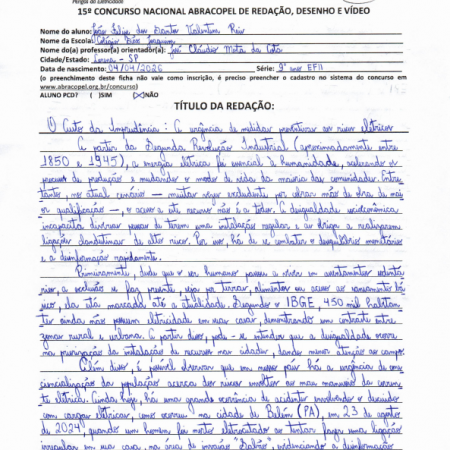 15º CONCURSO NACIONAL ABRACOPEL DE REDAÇÃO, DESENHO E VÍDEO
Nome do aluno: João Felipe dos Santos Valentim Reis
Nome da Escola: Colégio São Joaquim
Nome do(a) professor(a) orientador(a): José Cláudio Mota da
Cidade/Estado: Lorena - SP
Data de nascimento: 04/04/2026 Série: 9º ano EFII
(o preenchimento deste ficha não vale como inscrição, é preciso preencher o cadastro no sistema do concurso em
www.abracopel.org.br/concurso)
ALUNO PCD? ( )SIM (X)NÃO
TÍTULO DA REDAÇÃO:
O Custo da Imprudência: A urgência de medidas preventivas aos riscos elétricos
A partir da Segunda Revolução Industrial (aproximadamente entre
1850 e 1945), a energia elétrica foi essencial à humanidade, acelerando os
processos de produção e mudando o modo de vida da maioria das comunidades. Entre
tanto, no atual cenário — muitas vezes excludente por cobrar mão de obra de mai
or qualificação —, o acesso a este recurso não é a todos. A desigualdade socioeconômica
incapacita diversas pessoas de terem uma instalação regular e as obriga a realizarem
ligações clandestinas de alto risco. Por isso, há de se combater o desequilíbrio monetário
e a desinformação rapidamente.
Primeiramente, desde que o ser humano passou a viver em assentamentos sedentá
rios, a exclusão se faz presente, seja por terras, alimentos ou acesso ao saneamento bá
sico, da era até a atualidade. Segundo o IBGE, 450 mil habitan
tes ainda não possuem eletricidade em suas casas, demonstrando um contraste entre
zonas rurais e urbanas. A partir disso, pode-se entender que a desigualdade ocorre
na priorização da instalação de recursos nas cidades, dando menor atenção ao campo.
Além disso, é possível observar que em nosso país há a urgência de cons
cientização da população acerca dos riscos envoltos no mau manuseio da corren
te elétrica. Ainda hoje, há uma grande ocorrência de acidentes envolvendo o descuido
com cargas elétricas, como ocorreu na cidade de Belém (PA), em 23 de agosto
de 2024, quando um homem foi morto eletrocutado ao tentar fazer uma ligação
irregular em sua casa, na área de invasão evidenciando a desinformação